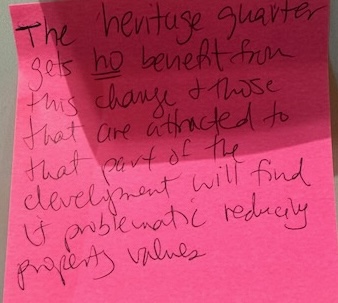 The heritage quarter
gets no benefit from
this change & those
that are attracted to
that part of the
development will find
it problematic reducing
property values